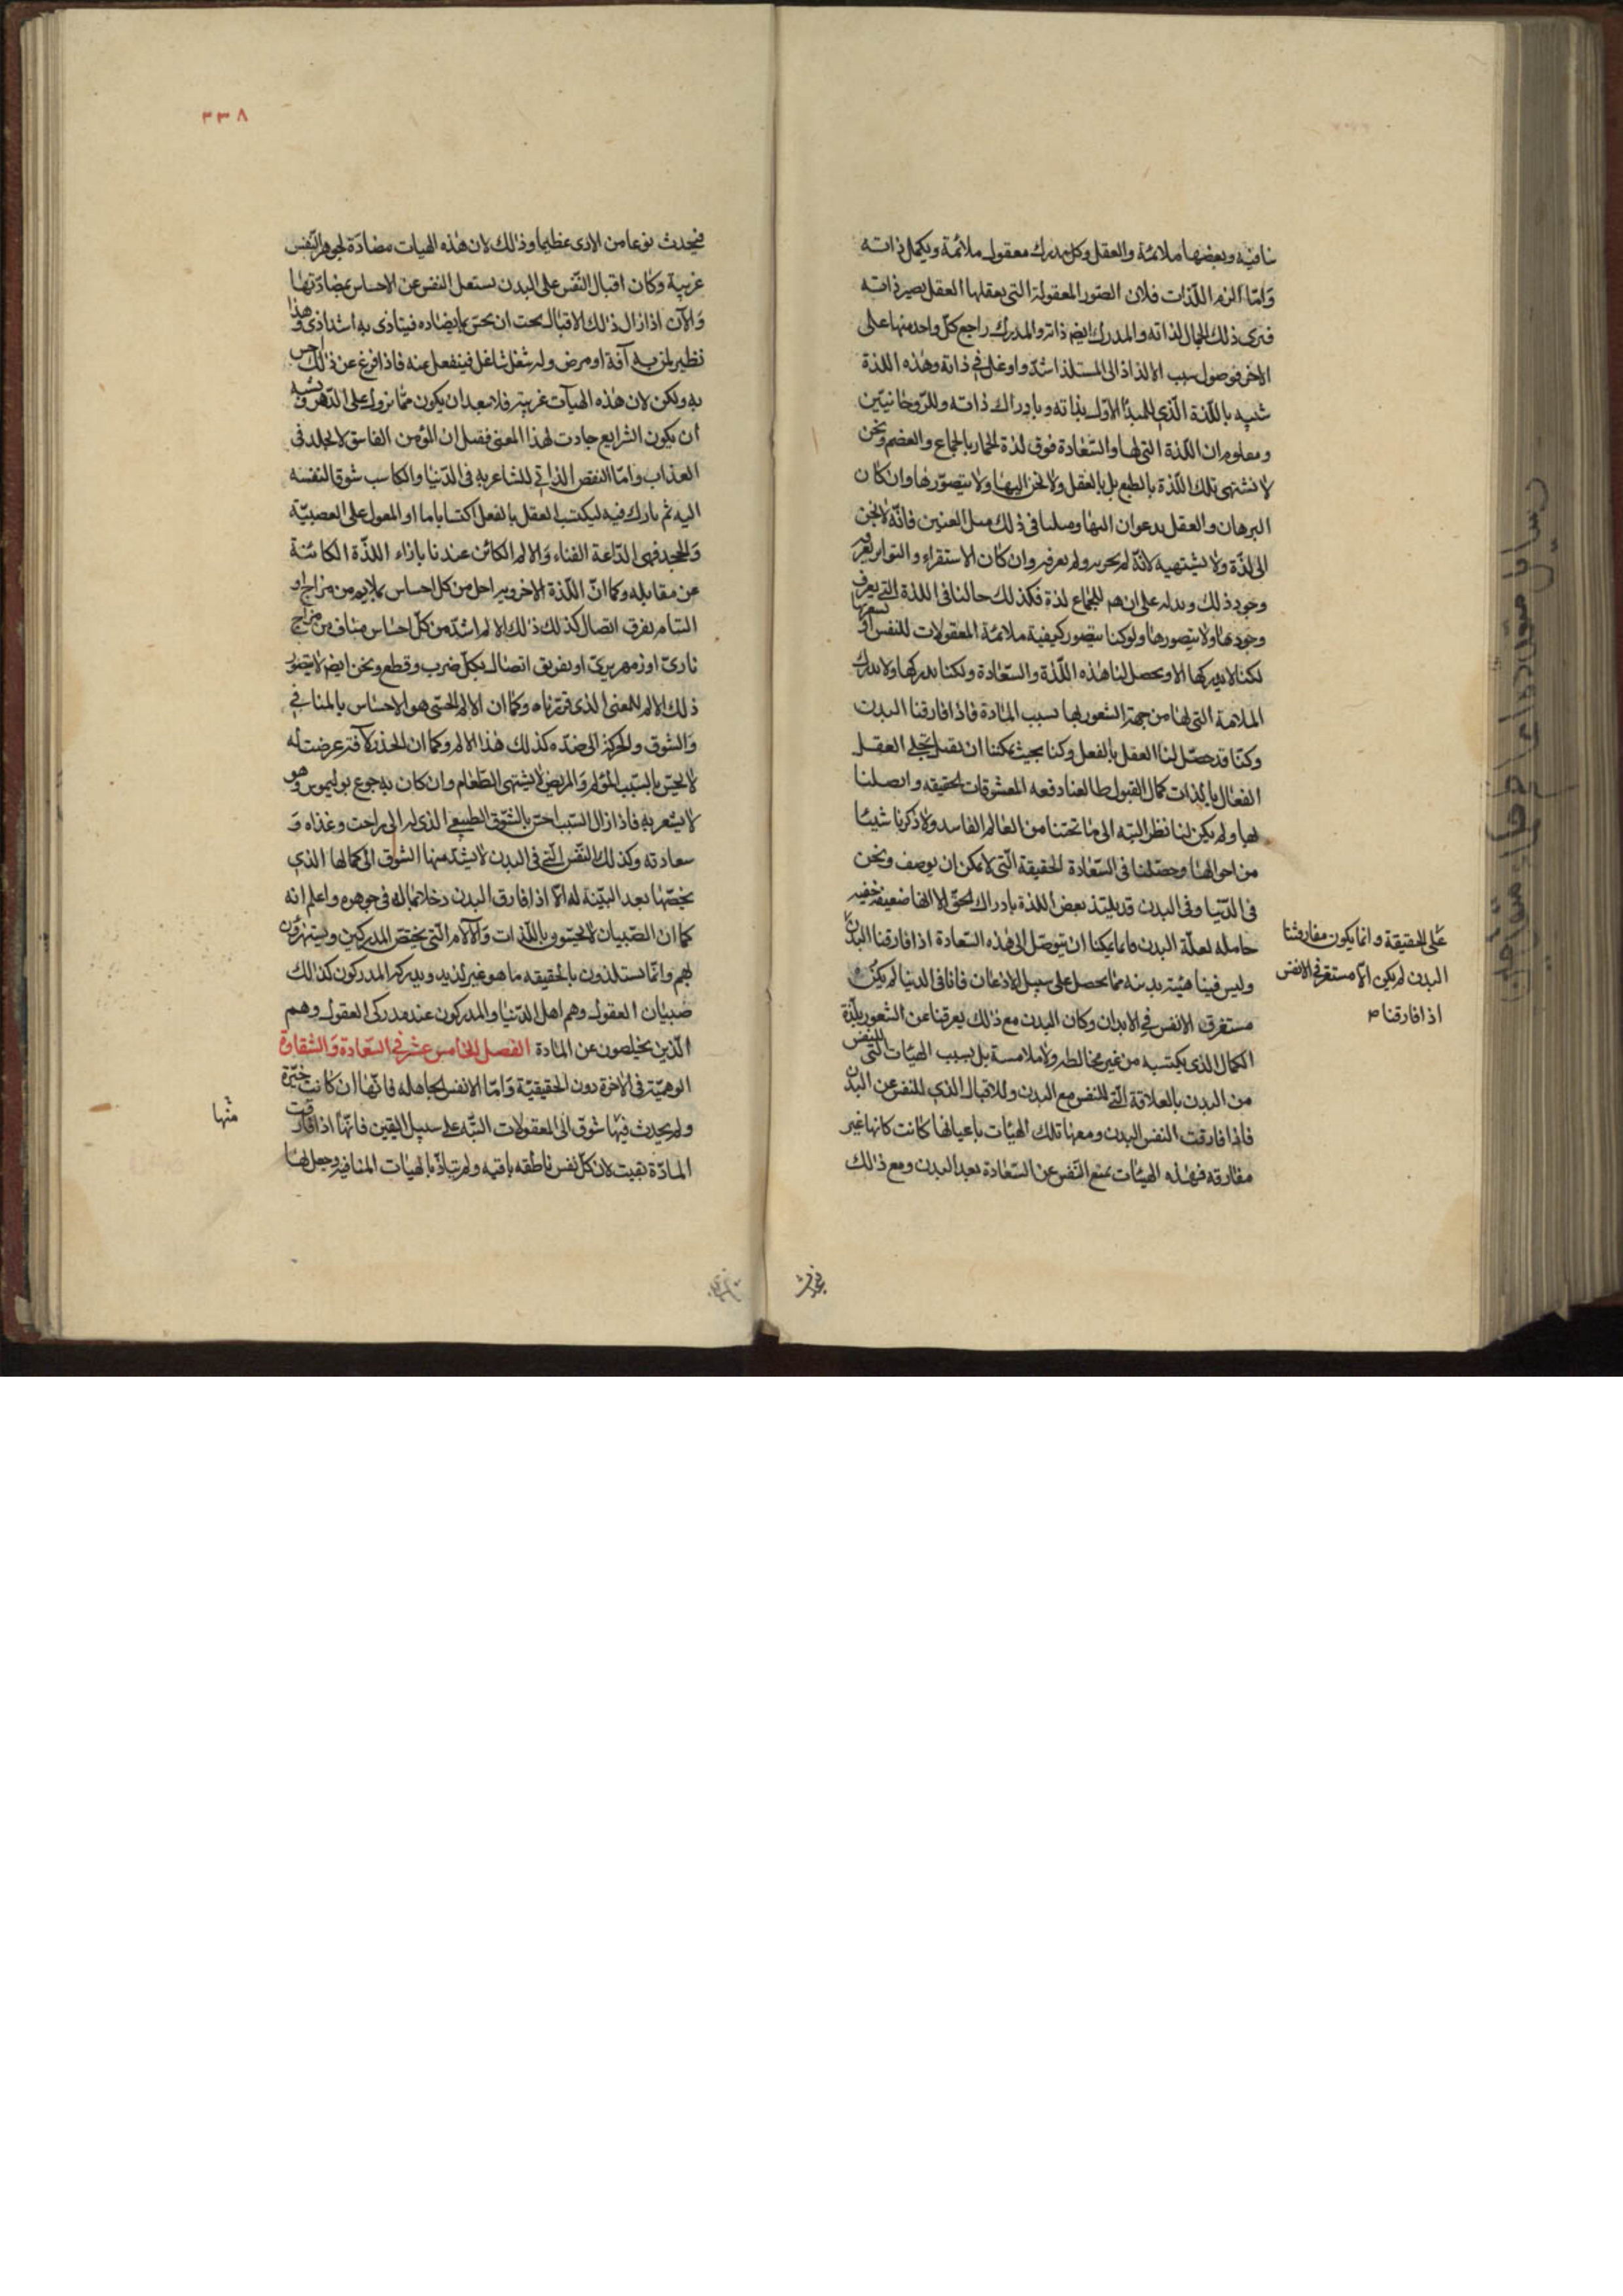 نافية وبعضها ملائمة والعقل وكل مدرك معقول ملائمة ويكمل ذاته
وامّا الزم اللّذات فلان الصّور المعقولة التى يعقلها العقل يصير ذاته
فترى ذلك الجمال لذاته والمدرك ايضا ذاته والمدرك راجع كلّ واحد منها على
الاخر فوصول سبب الالذاذ الى المستلذ اشدّ واوغل فى ذاته وهذه اللذة
شبيه باللّذة الّذى للمبدأ الاوّل بذاته وبادراك ذاته وللرّوحانيّين
ومعلوم ان اللّذة التى لها والسّعادة فوق لذة الحمار بالجماع والقضم ونحن
لا نشتهى تلك اللّذة بالطبع بل بالعقل ولا نحن اليها ولا نتصوّرها وان كان
البرهان والعقل يدعوان اليها ومثلنا فى ذلك مثل العنين فانّه لا يحن
الى لذّة ولا يشتهيه لانّه لم يجربه ولم يعرفه وان كان الاستقراء والتواتر يعرفه
وجود ذلك ويدله على ان هم للجماع لذة فكذلك حالنا فى اللذة التى يعرف
وجودها ولا نتصورها ولو كنا نتصور كيفية ملائمة المعقولات للنفس او نشعر بها
لكنا لا ندركها الا ويحصل لنا هذه اللّذة والسّعادة ولكنا ندركها ولا ندرك
الملائمة التى لها من جهة الشعور بها بسبب المادة فاذا فارقنا البدن
وكنّا قد حصّل لنا العقل بالفعل وكنا بحيث يمكننا ان نقبل تجلى العقل
الفعّال بالذات كمال القبول طالعنا دفعه المعشوقات الحقيقه واتصلنا
بها ولم يكن لنا نظر البتّه الى ما تحتنا من العالم الفاسد ولا ذكرنا شيئا
من احوالها وحصّلنا فى السّعادة الحقيقة الّتى لا يمكن ان يوصف ونحن
فى الدّنيا وفى البدن قد يلتذ بعض اللذة بادراك الحقّ الا انها ضعيفة خفيه
حامله لعلّة البدن وانما يمكنا ان نتوصّل الى هذه السّعادة اذا فارقنا البدن
وليس فينا هيئة بدنيه مما يحصل على سبيل الاذعان فانا فى الدنيا لم يكن
مستغرق الانفس فى الابدان وكان البدن مع ذلك يعرقنا عن الشعور بلذّة
الكمال الذى يكتسبه من غير مخالطه ولا ملامسة بل بسبب الهيئات التى للنفس
من البدن بالعلاقة الّتى للنفس مع البدن وللاقبال الذى للنفس عن البدن
فاذا فارقت النفس البدن ومعها تلك الهيئات باعيانها كانت كانها غير
مفارقه فهذه الهيئات تمنع النّفس عن السّعادة بعد البدن ومع ذلك
على الحقيقة وانما يكون مفارقتنا
البدن لم يكن الّا مستقر فى الانفس
اذا فارقنا
فيحدث
٣٣٨
فيحدث نوعا من الاذى عظيما وذلك لان هذه الهيات مضادّة لجوهر النّفس
غريبة وكان اقبال النّفس على البدن يشغل النفس عن الاحساس بمضادّتها
والآن اذا زال ذلك الاقبال يجب ان يحسّ بما يضاده فيتأذى به اشد اذى وهذا
نظير لمن به آفة او مرض وله شغل شاغل فينفعل عنه فاذا فرغ عن ذلك احس
به ولكن لان هذه الهيآت غريبة فلا يبعد ان يكون ممّا يزول على الدّهر ويشبه
أن يكون الشرايع جاءت لهذا المعنى فقيل ان المؤمن الفاسق لا يخلد فى
العذاب وامّا النقص الذاتى للشاعر به فى الدّنيا والكاسب شوقا لنفسه
اليه ثم تارك فيه ليكتسب العقل بالفعل اكتسابا ما او المعول على العصبيّة
والجحد فهى الدّاعة الفناء والالم الكائن عندنا بازاء اللذّة الكائنة
عن مقابله وكما انّ اللّذة الاخروية اجل من كل احساس بملايم من مزاج او
التئام تفرق اتصال كذلك ذلك الالم اشدّ من كلّ احساس مناف من مزاج
نارىّ او زمهريرىّ او تفريق اتصال بكلّ ضرب وقطع ونحن ايضا لا نتصور
ذلك الالم للمعنى الذى قرّرناه وكما ان الالم الحسّى هو الاحساس بالمنافى
والشوق والحركة الى ضدّه كذلك هذا الالم وكما ان الخدر لآفة عرضت له
لا يحسّ بالسّبب المؤلم والمريض لا يشتهى الطّعام وان كان به جوع بوليموس وهو
لا يشعر به فاذا زال السّبب احسّ بالشّوق الطبيعى الذى له الى راحته وغذاه و
سعادته وكذلك النّفس الّتى فى البدن لا يشتدّ منها الشّوق الى كمالها الذى
يخصّها بعد البيّنة له الّا اذا فارق البدن وخلا بما له فى جوهره واعلم انه
كما ان الصّبيان لا يحسّو باللّذات والآلام الّتى يختصّ المدركين ويستهزؤن
بهم وانّما يستلذون بالحقيقه ما هو غير لذيذ ويدركه المدركون كذلك
صبيان العقول وهم اهل الدّنيا والمدركون عند مدركى العقول وهم
الّذين يخلصون عن المادة الفصل الخامس عشر فى السّعادة والشّقاوة
الوهميّة فى الآخرة دون الحقيقيّة وامّا الانفس الجاهله فانّها ان كانت خيّرة
ولم يحدث فيها شوق الى المعقولات البتّه على سبيل اليقين فانّها اذا فارقت
المادّة بقيت لان كلّ نفس ناطقه باقيه ولم يتأذّ بالهيات المنافية وجعل لها
منها